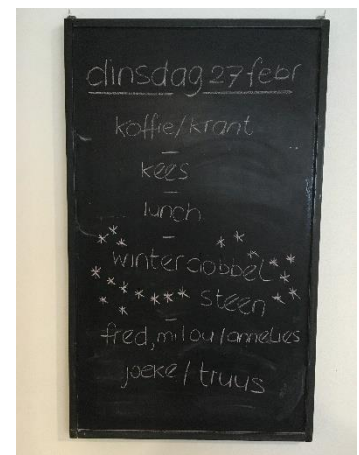 dinsdag 27 febr
koffie/krant
–
kees
–
lunch
–
winterdobbel
steen
–
fred, milou/annelies
joeke/truus